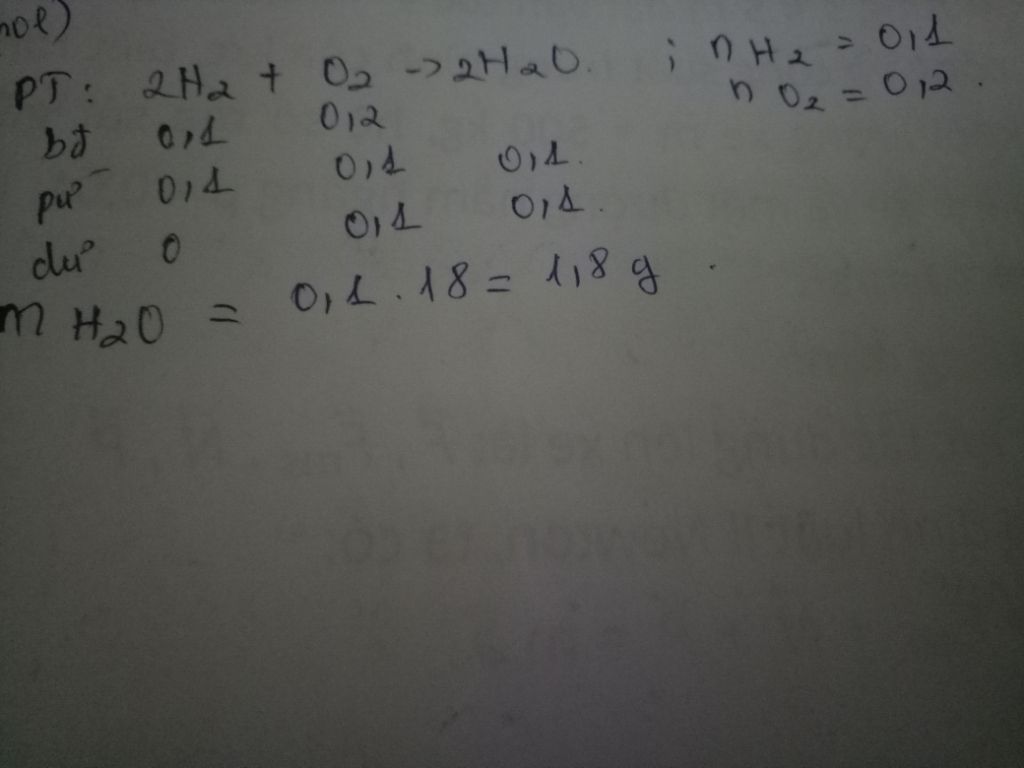 mol)
PT: 2H2 + O2 -> 2H2O. ; n H2 = 0,1
n O2 = 0,2.
bđ 0,1 0,2
pư 0,1 0,1 0,1.
dư 0 0,1 0,1.
m H2O = 0,1 . 18 = 1,8 g